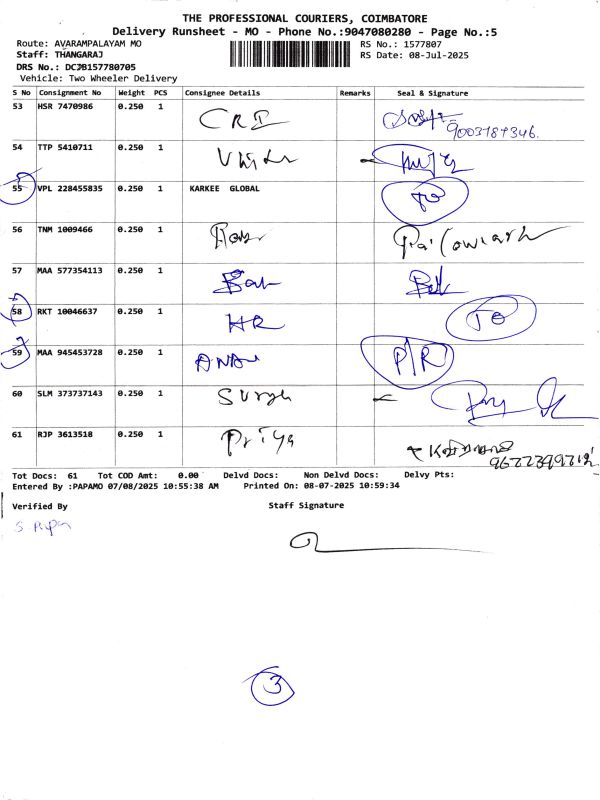 THE PROFESSIONAL COURIERS, COIMBATORE
Delivery Runsheet - MO - Phone No.:9047080280 - Page No.:5
Route: AVARAMPALAYAM MO RS No.: 1577807
Staff: THANGARAJ RS Date: 08-Jul-2025
DRS No.: DCJB157780705
Vehicle: Two Wheeler Delivery
S No Consignment No Weight PCS Consignee Details Remarks Seal & Signature
53 HSR 7470986 0.250 1 CRI
9003787346.
54 TTP 5410711 0.250 1
55 VPL 228455835 0.250 1 KARKEE GLOBAL TO
56 TNM 1009466 0.250 1
57 MAA 577354113 0.250 1
58 RKT 10046637 0.250 1 HR TO
59 MAA 945453728 0.250 1 P/R
60 SLM 373737143 0.250 1 Surya
61 RJP 3613518 0.250 1 Priya
Tot Docs: 61 Tot COD Amt: 0.00 Delvd Docs: Non Delvd Docs: Delvy Pts:
Entered By :PAPAMO 07/08/2025 10:55:38 AM Printed On: 08-07-2025 10:59:34
Verified By Staff Signature
3